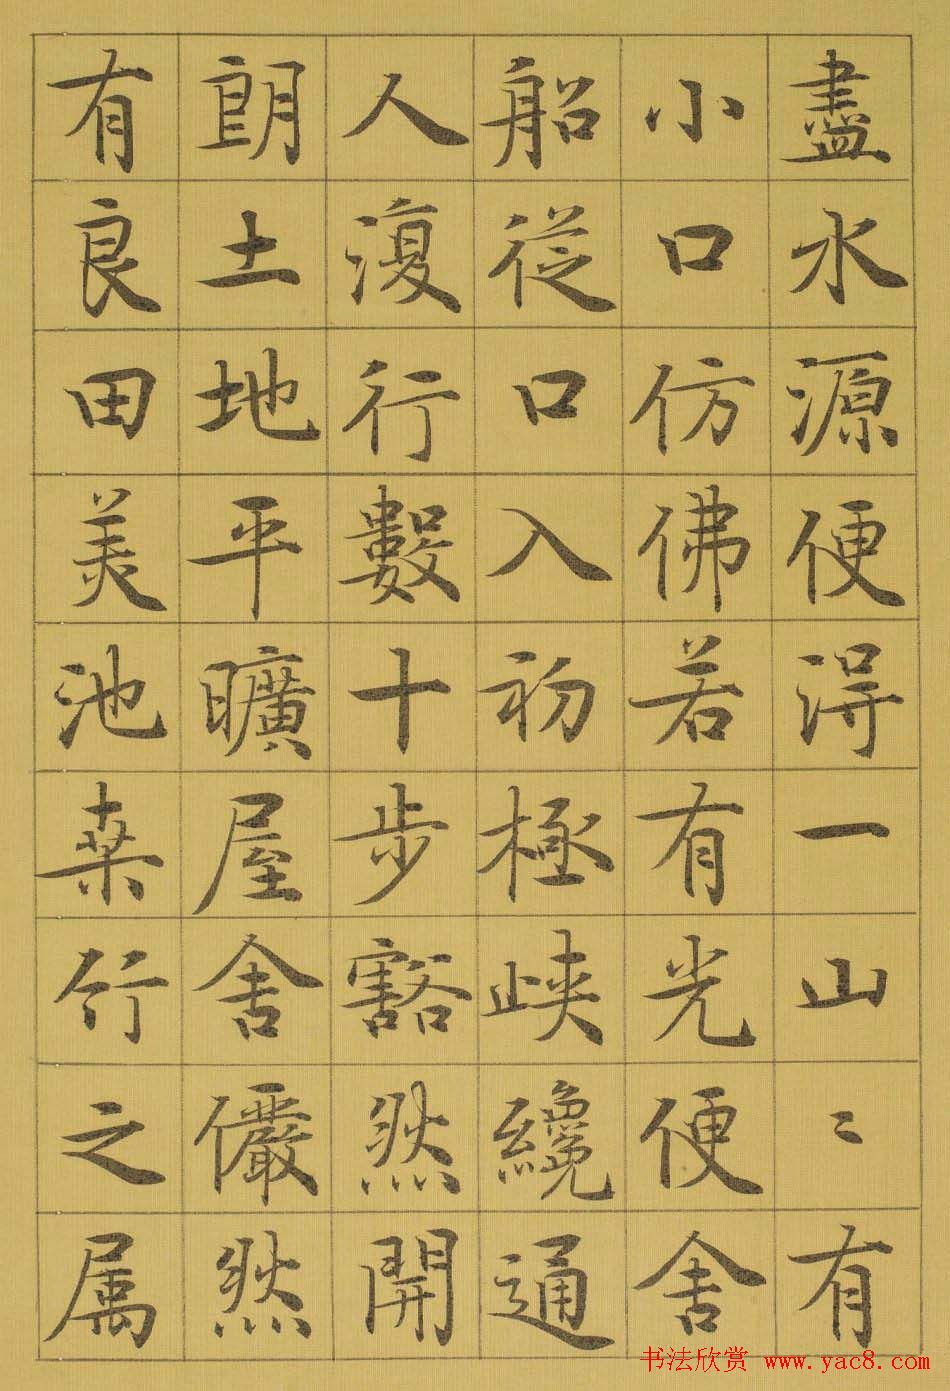 盡水源便得一山〻有
小口仿佛若有光便舍
船從口入初極峽纔通
人復行數十步豁然開
朗土地平曠屋舍儼然
有良田美池桒竹之属
书法欣赏 www.yac8.com